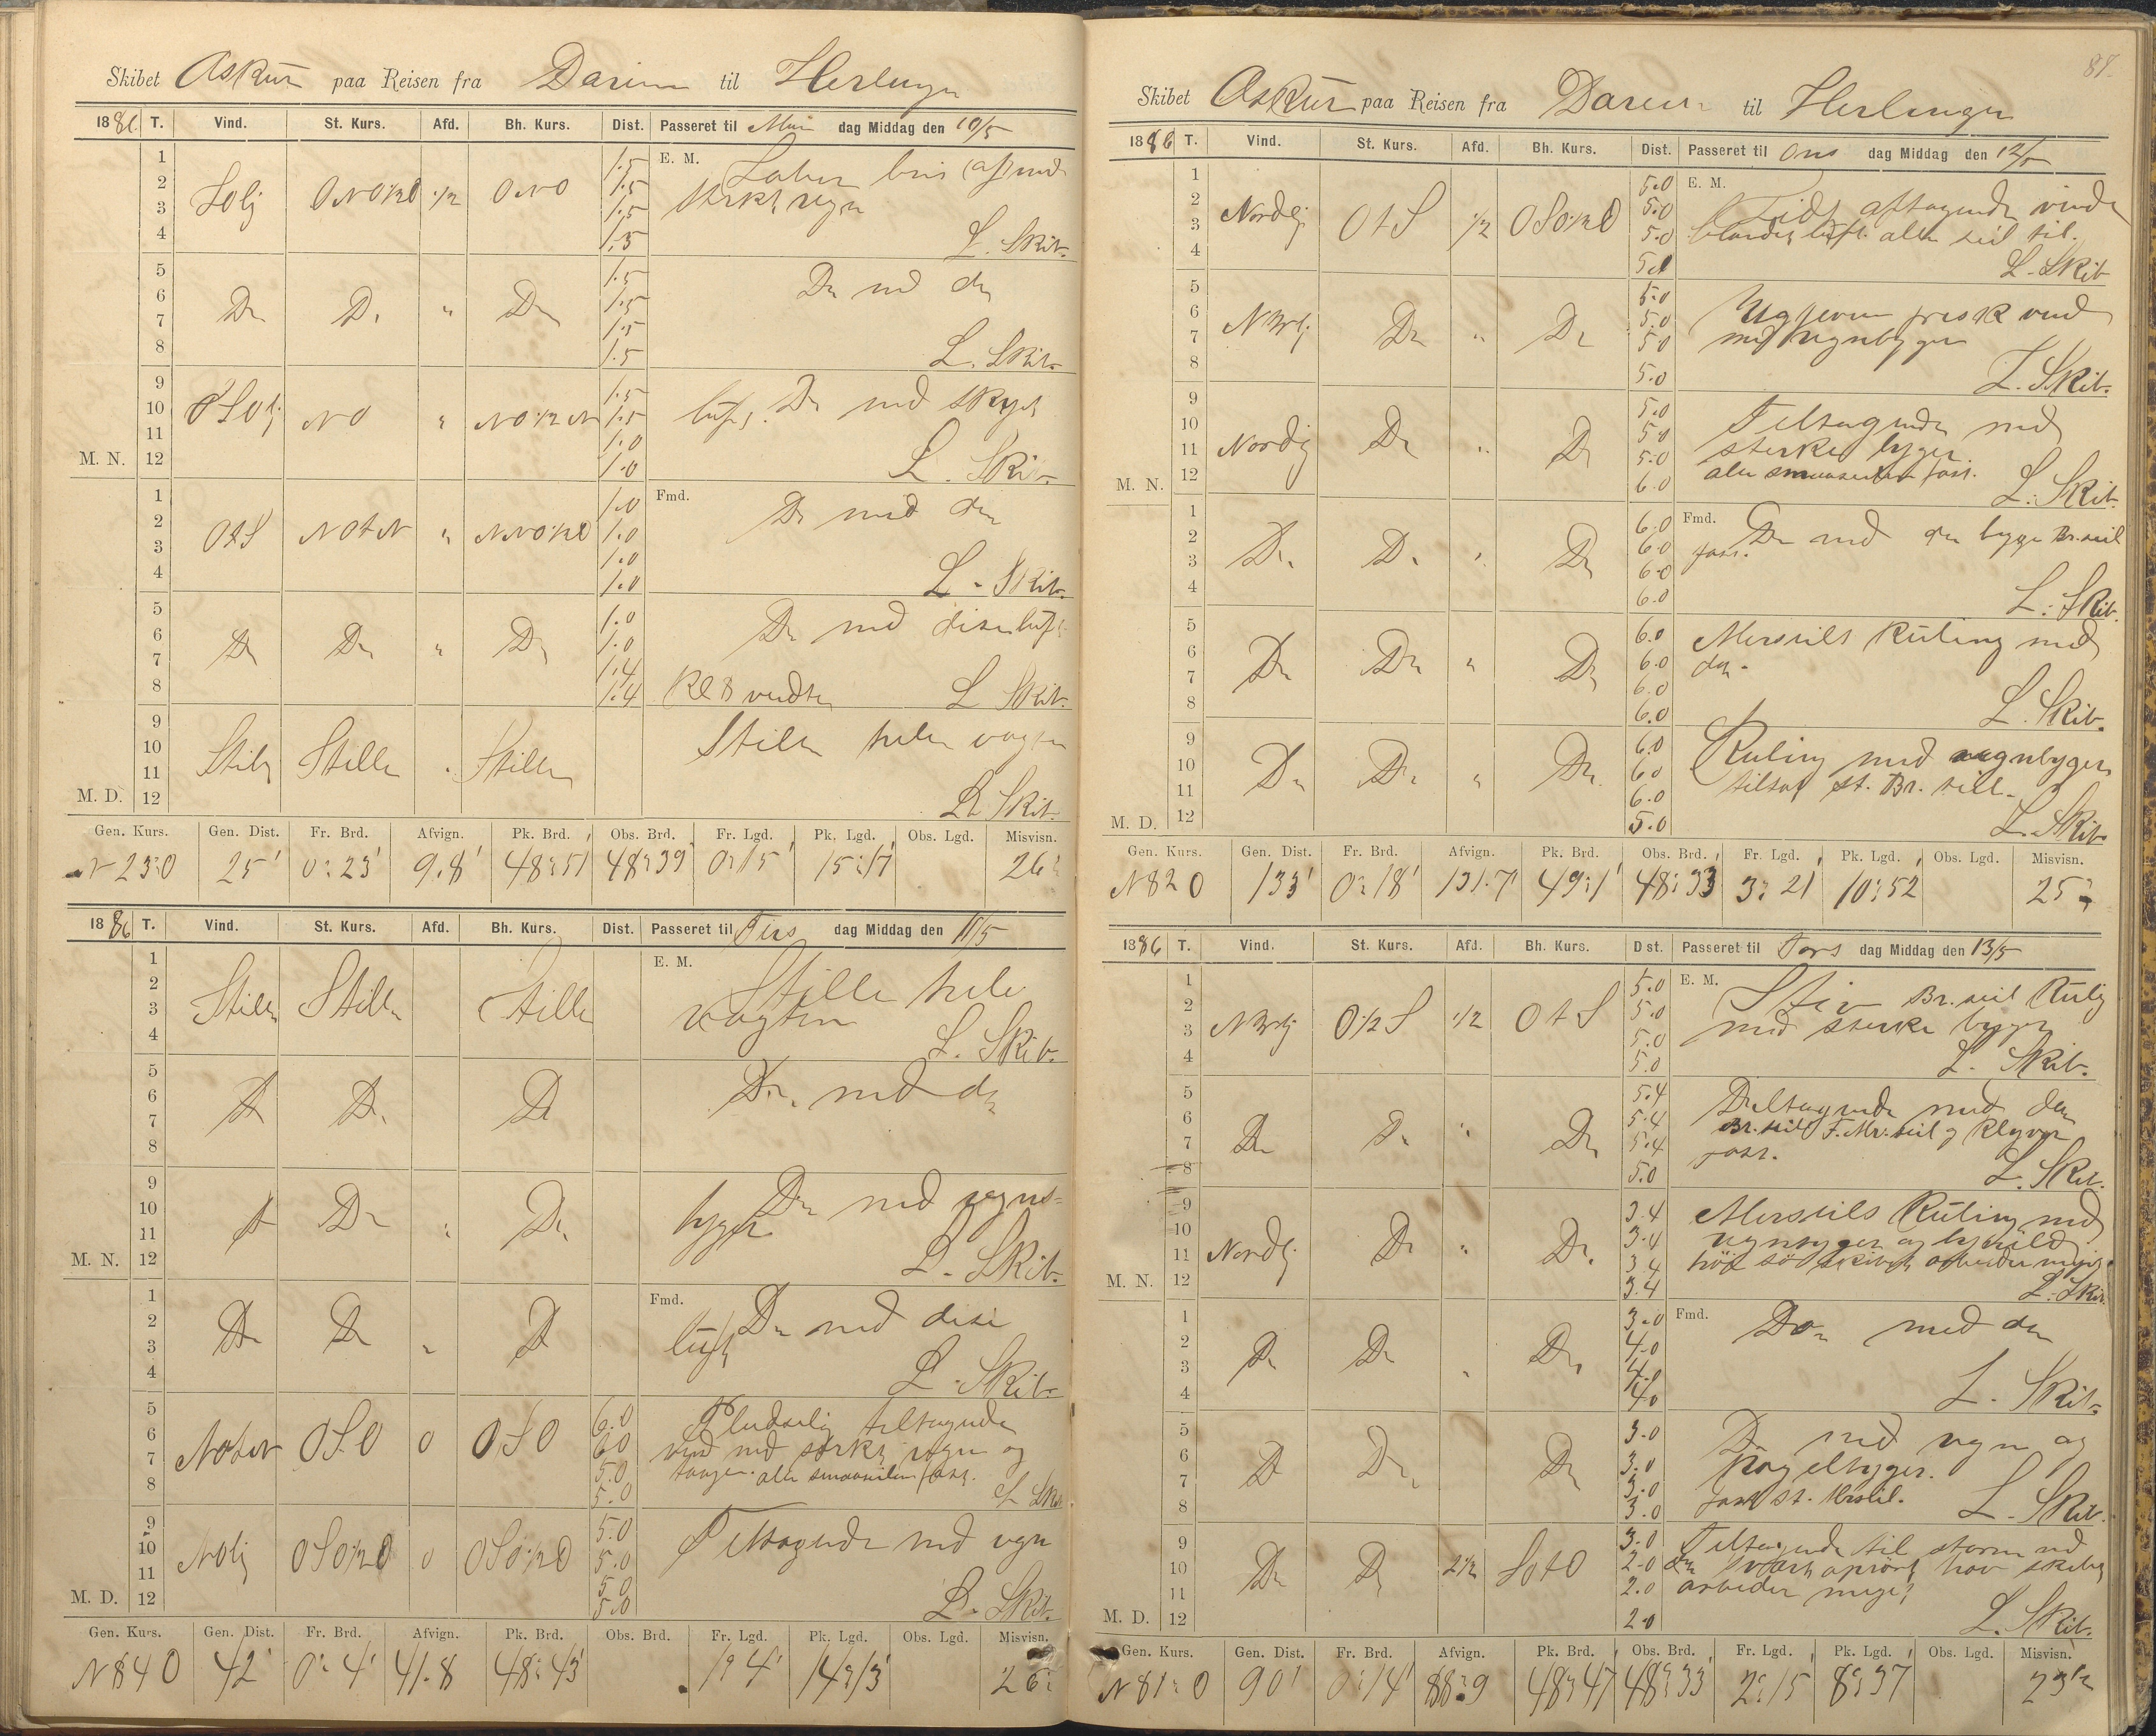 Skibet Askur paa Reisen fra Darien til Herlingen
1886. T. Vind. St. Kurs. Afd. Bh. Kurs. Dist. Passeret til Man dag Middag den 10/5
1 1.5 E. M. Laber bris afsted
2 Solj ONO½O ½ ONO 1.5 sterkt regn
3 1.5
4 1.5 L. Skib.
5 1.5 Do med do
6 Do Do " Do 1.5
7 1.5
8 1.5 L. Skib.
9 1.5 Do med skyet
10 OSOlj NO " NO½N 1.5 luft.
11 1.0
M. N. 12 1.0 L. Skib.
1 1.0 Fmd. Do med do
2 OtS NOtN " NNO½O 1.0
3 1.0
4 1.0 L. Skib.
5 1.0 Do med diseluft
6 Do Do " Do 1.0
7 1.4
8 1.4 Kl 8 vendte L Skib.
9 Stille hele vagten
10 Stille Stille Stille
11
M. D. 12 L. Skib.
Gen. Kurs. Gen. Dist. Fr. Brd. Afvign. Pk. Brd. Obs. Brd. Fr. Lgd. Pk. Lgd. Obs. Lgd. Misvisn.
N 23 O 25' 0° 23' 9.8' 48° 51' 48° 39' 0° 15' 15° 17' 26°
1886 T. Vind. St. Kurs. Afd. Bh. Kurs. Dist. Passeret til Tirs dag Middag den 11/5
1 E. M. Stille hele
2 Stille Stille Stille vagten
3
4 L. Skib.
5 Do med do
6 Do Do Do
7
8
9 Do med regns-
10 Do Do " Do byger
11
M. N. 12 L. Skib.
1 Fmd. Do med dise
2 Do Do " Do luft
3
4 L. Skib.
5 6.0 Pludselig tiltagende
6 NOtN OSO 0 OSO 6.0 vind med sterkt regn og
7 5.0 taage. alle smaaseilene fast.
8 5.0 L Skib
9 5.0 Tiltagende med regn
10 NOlj OSO½O 0 OSO½O 5.0
11 5.0
M. D. 12 5.0 L. Skib.
Gen. Kurs. Gen. Dist. Fr. Brd. Afvign. Pk. Brd. Obs. Brd. Fr. Lgd. Pk. Lgd. Obs. Lgd. Misvisn.
N 84 O 42' 0° 4' 41.8 48° 43' 1° 4' 14° 13' 26°
87.
Skibet Askur paa Reisen fra Darien til Herlingen
1886 T. Vind. St. Kurs. Afd. Bh. Kurs. Dist. Passeret til Ons dag Middag den 12/5
1 5.0 E. M. Lidt aftagende vind
2 Nordlj OtS ½ OSO½O 5.0 blandet luft. alle seil til.
3 5.0
4 5.0 L. Skib
5 5.0 Ugjevn frisk vind
6 NNvlj Do " Do 5.0 med regnbyger
7 5.0
8 5.0 L. Skib.
9 5.0 Tiltagende med
10 Nordlj Do " Do 5.0 sterke byger.
11 5.0 alle smaaseilene fast.
M. N. 12 6.0 L. Skib
1 6.0 Fmd. Do med do byge Br. seil
2 Do Do " Do 6.0 fast.
3 6.0
4 6.0 L. Skib.
5 6.0 Merseils Kuling med
6 Do Do " Do 6.0 do.
7 6.0
8 6.0 L. Skib.
9 6.0 Kuling med regnbyger
10 Do Do " Do 6.0 tilsat St. Br. seil.
11 6.0
M. D. 12 5.0 L. Skib.
Gen. Kurs. Gen. Dist. Fr. Brd. Afvign. Pk. Brd. Obs. Brd. Fr. Lgd. Pk. Lgd. Obs. Lgd. Misvisn.
N 82 O 133' 0° 18' 131.7' 49° 1' 48° 33 3° 21 10° 52 25°
1886 T. Vind. St. Kurs. Afd. Bh. Kurs. Dist. Passeret til Tors dag Middag den 13/5
1 5.0 E. M. Stiv Br. seil Kuling
2 NNvlj O½S ½ OtS 5.0 med sterke byger
3 5.0
4 5.0 L. Skib.
5 5.4 Tiltagende med do
6 Do Do " Do 5.4 Br. seil F. Mr. seil og Klyver
7 5.4 fast.
8 5.0 L. Skib.
9 3.4 Merseils Kuling med
10 Nordlj Do " Do 3.4 regnbyger og
11 3.4 høi sö skibet arbeider meget
M. N. 12 3.4 L. Skib.
1 3.0 Fmd. Do med do
2 Do Do " Do 4.0
3 4.0
4 4.0 L. Skib.
5 3.0 Do med regn og
6 Do Do Do 3.0 hagelbyger.
7 3.0 fast St. Mrseil.
8 3.0 L. Skib.
9 3.0 Tiltagende til storm med
10 Do Do 2½ SOtO 2.0 do svært oprørt hav skibet
11 2.0 arbeider meget
M. D. 12 2.0 L. Skib.
Gen. Kurs. Gen. Dist. Fr. Brd. Afvign. Pk. Brd. Obs. Brd. Fr. Lgd. Pk. Lgd. Obs. Lgd. Misvisn.
N 81° O 90' 0° 14' 88.9 48° 47' 48° 33' 2° 15 8° 37 23½